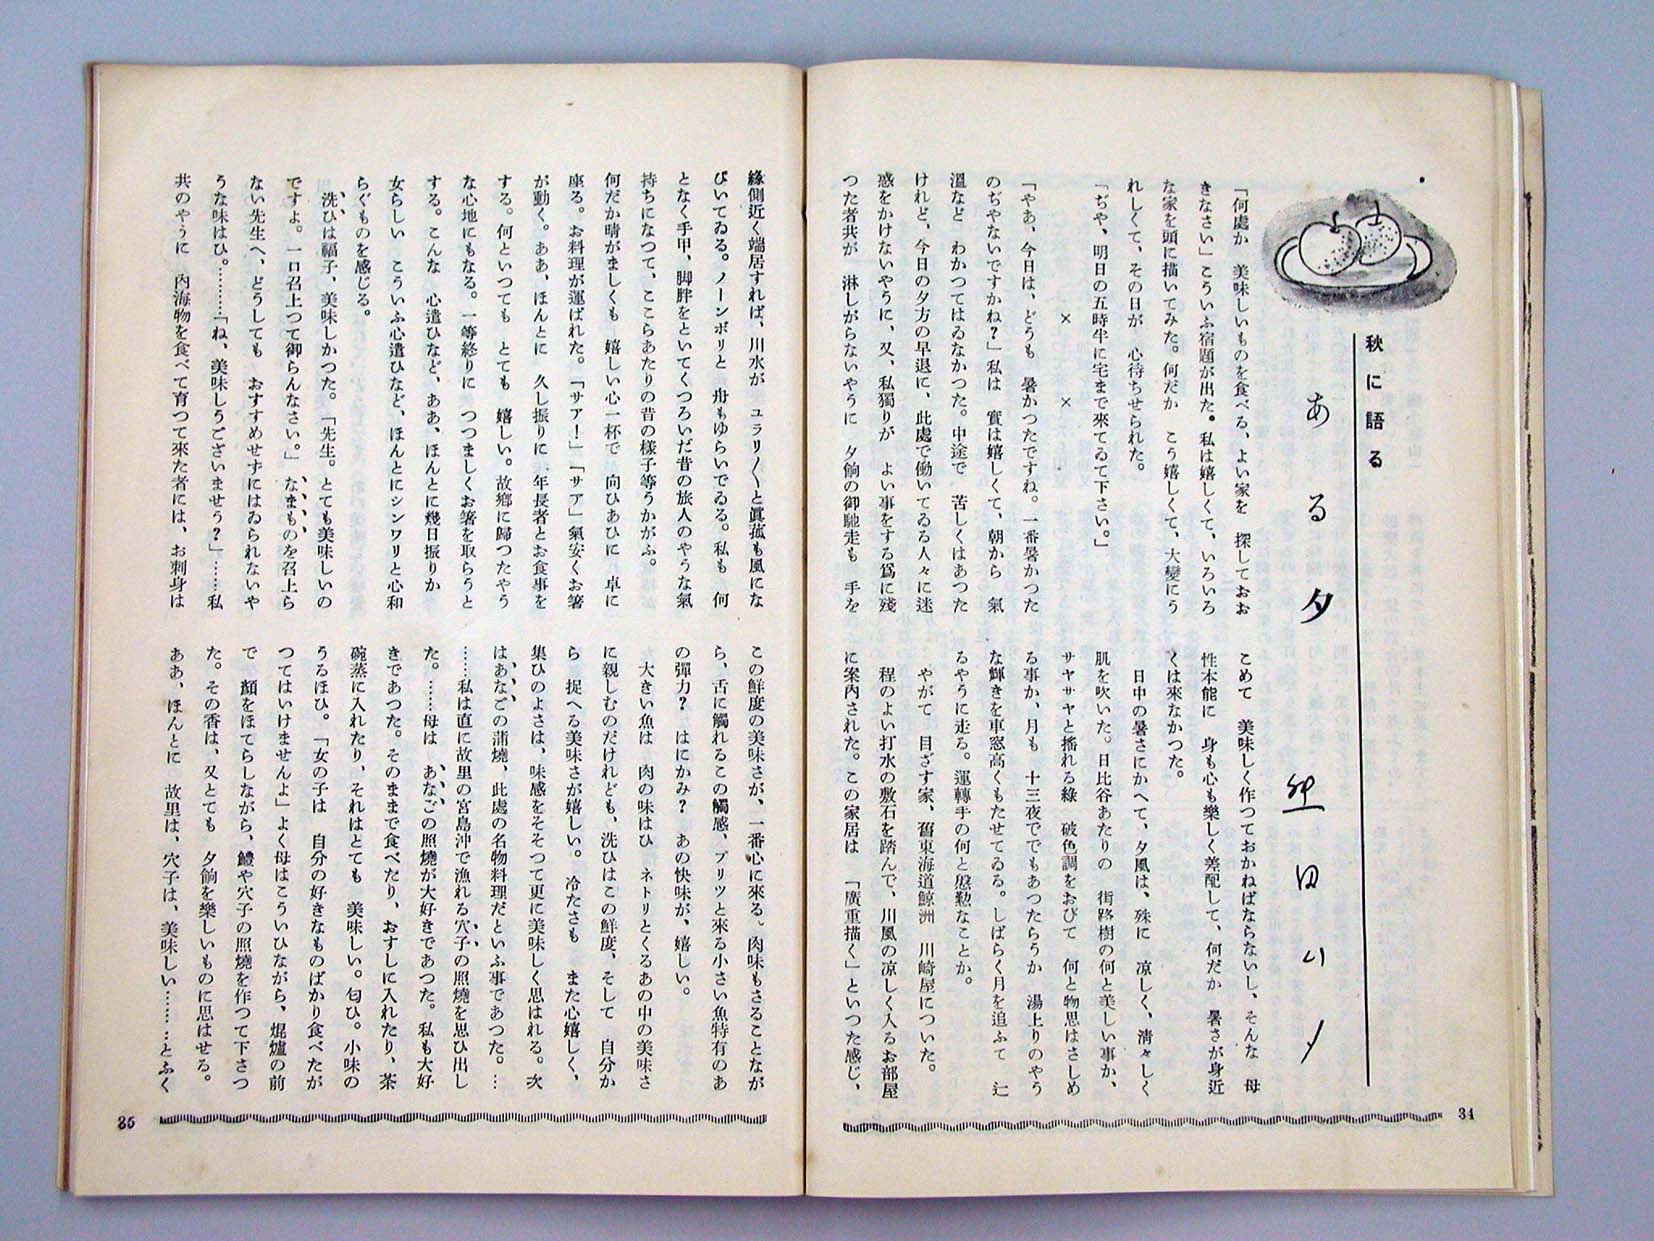 秋に語る
ある夕
田
「何處か　美味しいものを食べる、よい家を　探しておお
きなさい」こういふ宿題が出た。私は嬉しくて、いろいろ
な家を頭に描いてみた。何だか　こう嬉しくて、大變にう
れしくて、その日が　心待ちせられた。
「ぢや、明日の五時半に宅まで來てゐて下さい。」
×　×
「やあ、今日は、どうも　暑かつたですね。一番暑かつた
のぢやないですかね？」私は　實は嬉しくて、朝から　氣
溫など　わかつてはゐなかつた。中途で　苦しくはあつた
けれど、今日の夕方の早退に、此處で働いてゐる人々に迷
惑をかけないやうに、又、私獨りが　よい事をする爲に殘
つた者共が　淋しがらないやうに　夕餉の御馳走も　手を
こめて　美味しく作つておかねばならないし、そんな　母
性本能に　身も心も樂しく差配して、何だか　暑さが身近
くは來なかつた。
日中の暑さにかへて、夕風は、殊に　凉しく、淸々しく
肌を吹いた。日比谷あたりの　街路樹の何と美しい事か、
サヤサヤと搖れる綠　破色調をおびて　何と物思はさしめ
る事か、月も　十三夜ででもあつたらうか　湯上りのやう
な輝きを車窓高くもたせてゐる。しばらく月を追ふて　辷
るやうに走る。運轉手の何と慇懃なことか。
やがて　目ざす家、舊東海道鮫洲　川崎屋についた。
程のよい打水の敷石を踏んで、川風の凉しく入るお部屋
に案内された。この家居は　「廣重描く」といつた感じ、
34
緣側近く端居すれば、川水が　ユラリ〱と眞菰も風にな
びいてゐる。ノーンボリと　舟もゆらいでゐる。私も　何
となく手甲、脚胖をといてくつろいだ昔の旅人のやうな氣
持ちになつて、ここらあたりの昔の樣子等うかがふ。
何だか晴がましくも　嬉しい心一杯で　向ひあひにれ　卓に
座る。お料理が運ばれた。「サア！」「サア」氣安くお箸
が動く。ああ、ほんとに　久し振りに　年長者とお食事を
する。何といつても　とても　嬉しい。故鄕に歸つたやう
な心地にもなる。一等終りに　つつましくお箸を取らうと
する。こんな　心遣ひなど、ああ、ほんとに幾日振りか
女らしい　こういふ心遣ひなど、ほんとにシンワリと心和
らぐものを感じる。
洗ひは福子、美味しかつた。「先生。とても美味しいの
ですよ。一口召上つて御らんなさい。」なまものを召上ら
ない先生へ、どうしても　おすすめせずにはゐられないや
うな味はひ。…………「ね、美味しうございませう？」……私
共のやうに　内海物を食べて育つて來た者には、お刺身は
この鮮度の美味さが、一番心に來る。肉味もさることなが
ら、舌に觸れるこの觸感、プリツと來る小さい魚特有のあ
の彈力？はにかみ？　あの快味が、嬉しい。
大きい魚は　肉の味はひ　ネトリとくるあの中の美味さ
に親しむのだけれども、洗ひはこの鮮度、そして　自分か
ら　捉へる美味さが嬉しい。冷たさも　また心嬉しく、
集ひのよさは、味感をそそつて更に美味しく思はれる。次
はあなごの蒲燒、此處の名物料理だといふ事であつた。…
……私は直に故里の宮島沖で漁れる穴子の照燒を思ひ出し
た。……母は　あなごの照燒が大好きであつた。私も大好
きであつた。そのままで食べたり、おすしに入れたり、茶
碗蒸に入れたり、それはとても　美味しい。匂ひ。小味の
うるほひ。「女の子は　自分の好きなものばかり食べたが
つてはいけませんよ」よく母はこういひながら、焜爐の前
で　顏をほてらしながら、鱧や穴子の照燒を作つて下さつ
た。その香は、又とても　夕餉を樂しいものに思はせる。
ああ、ほんとに　故里は、穴子は、美味しい………とふく
35